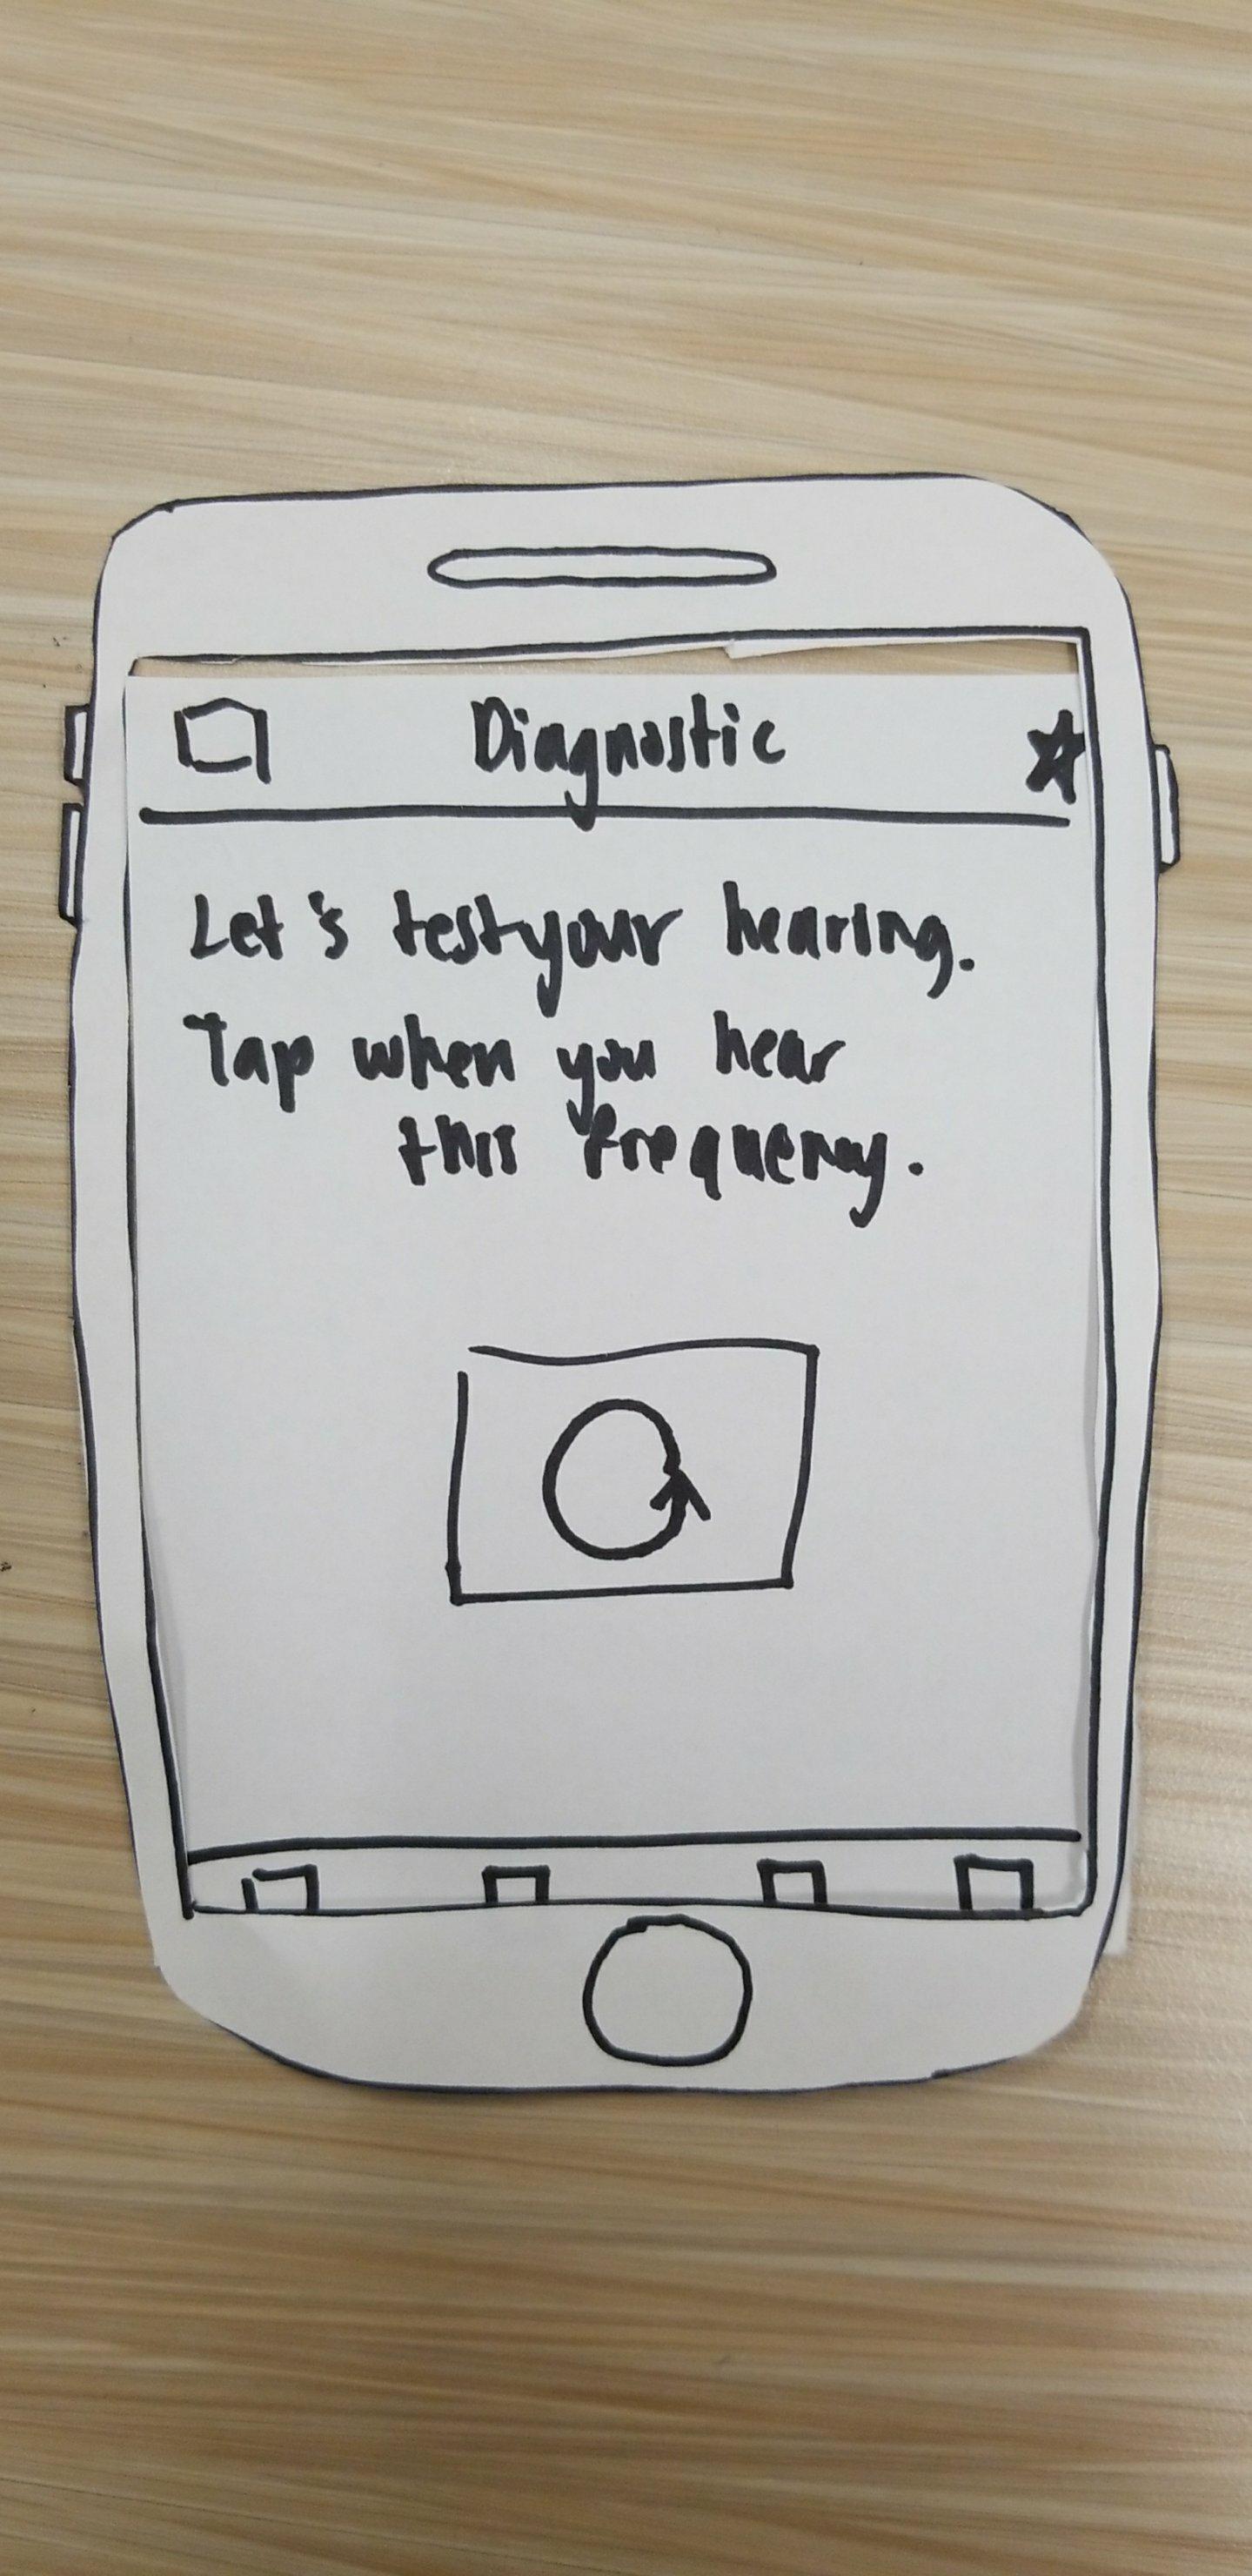 Diagnostic
Let's test your hearing.
Tap when you hear
this frequency.